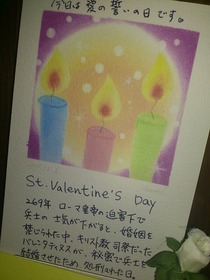 今日は愛の誓いの日です。
St. Valentine's Day
269年 ローマ皇帝の迫害下で
兵士の士気が下がると、婚姻を
禁じられた中、キリスト教司祭だった
バレンタティヌスが、秘密で兵士を
結婚させたため、処刑された日。